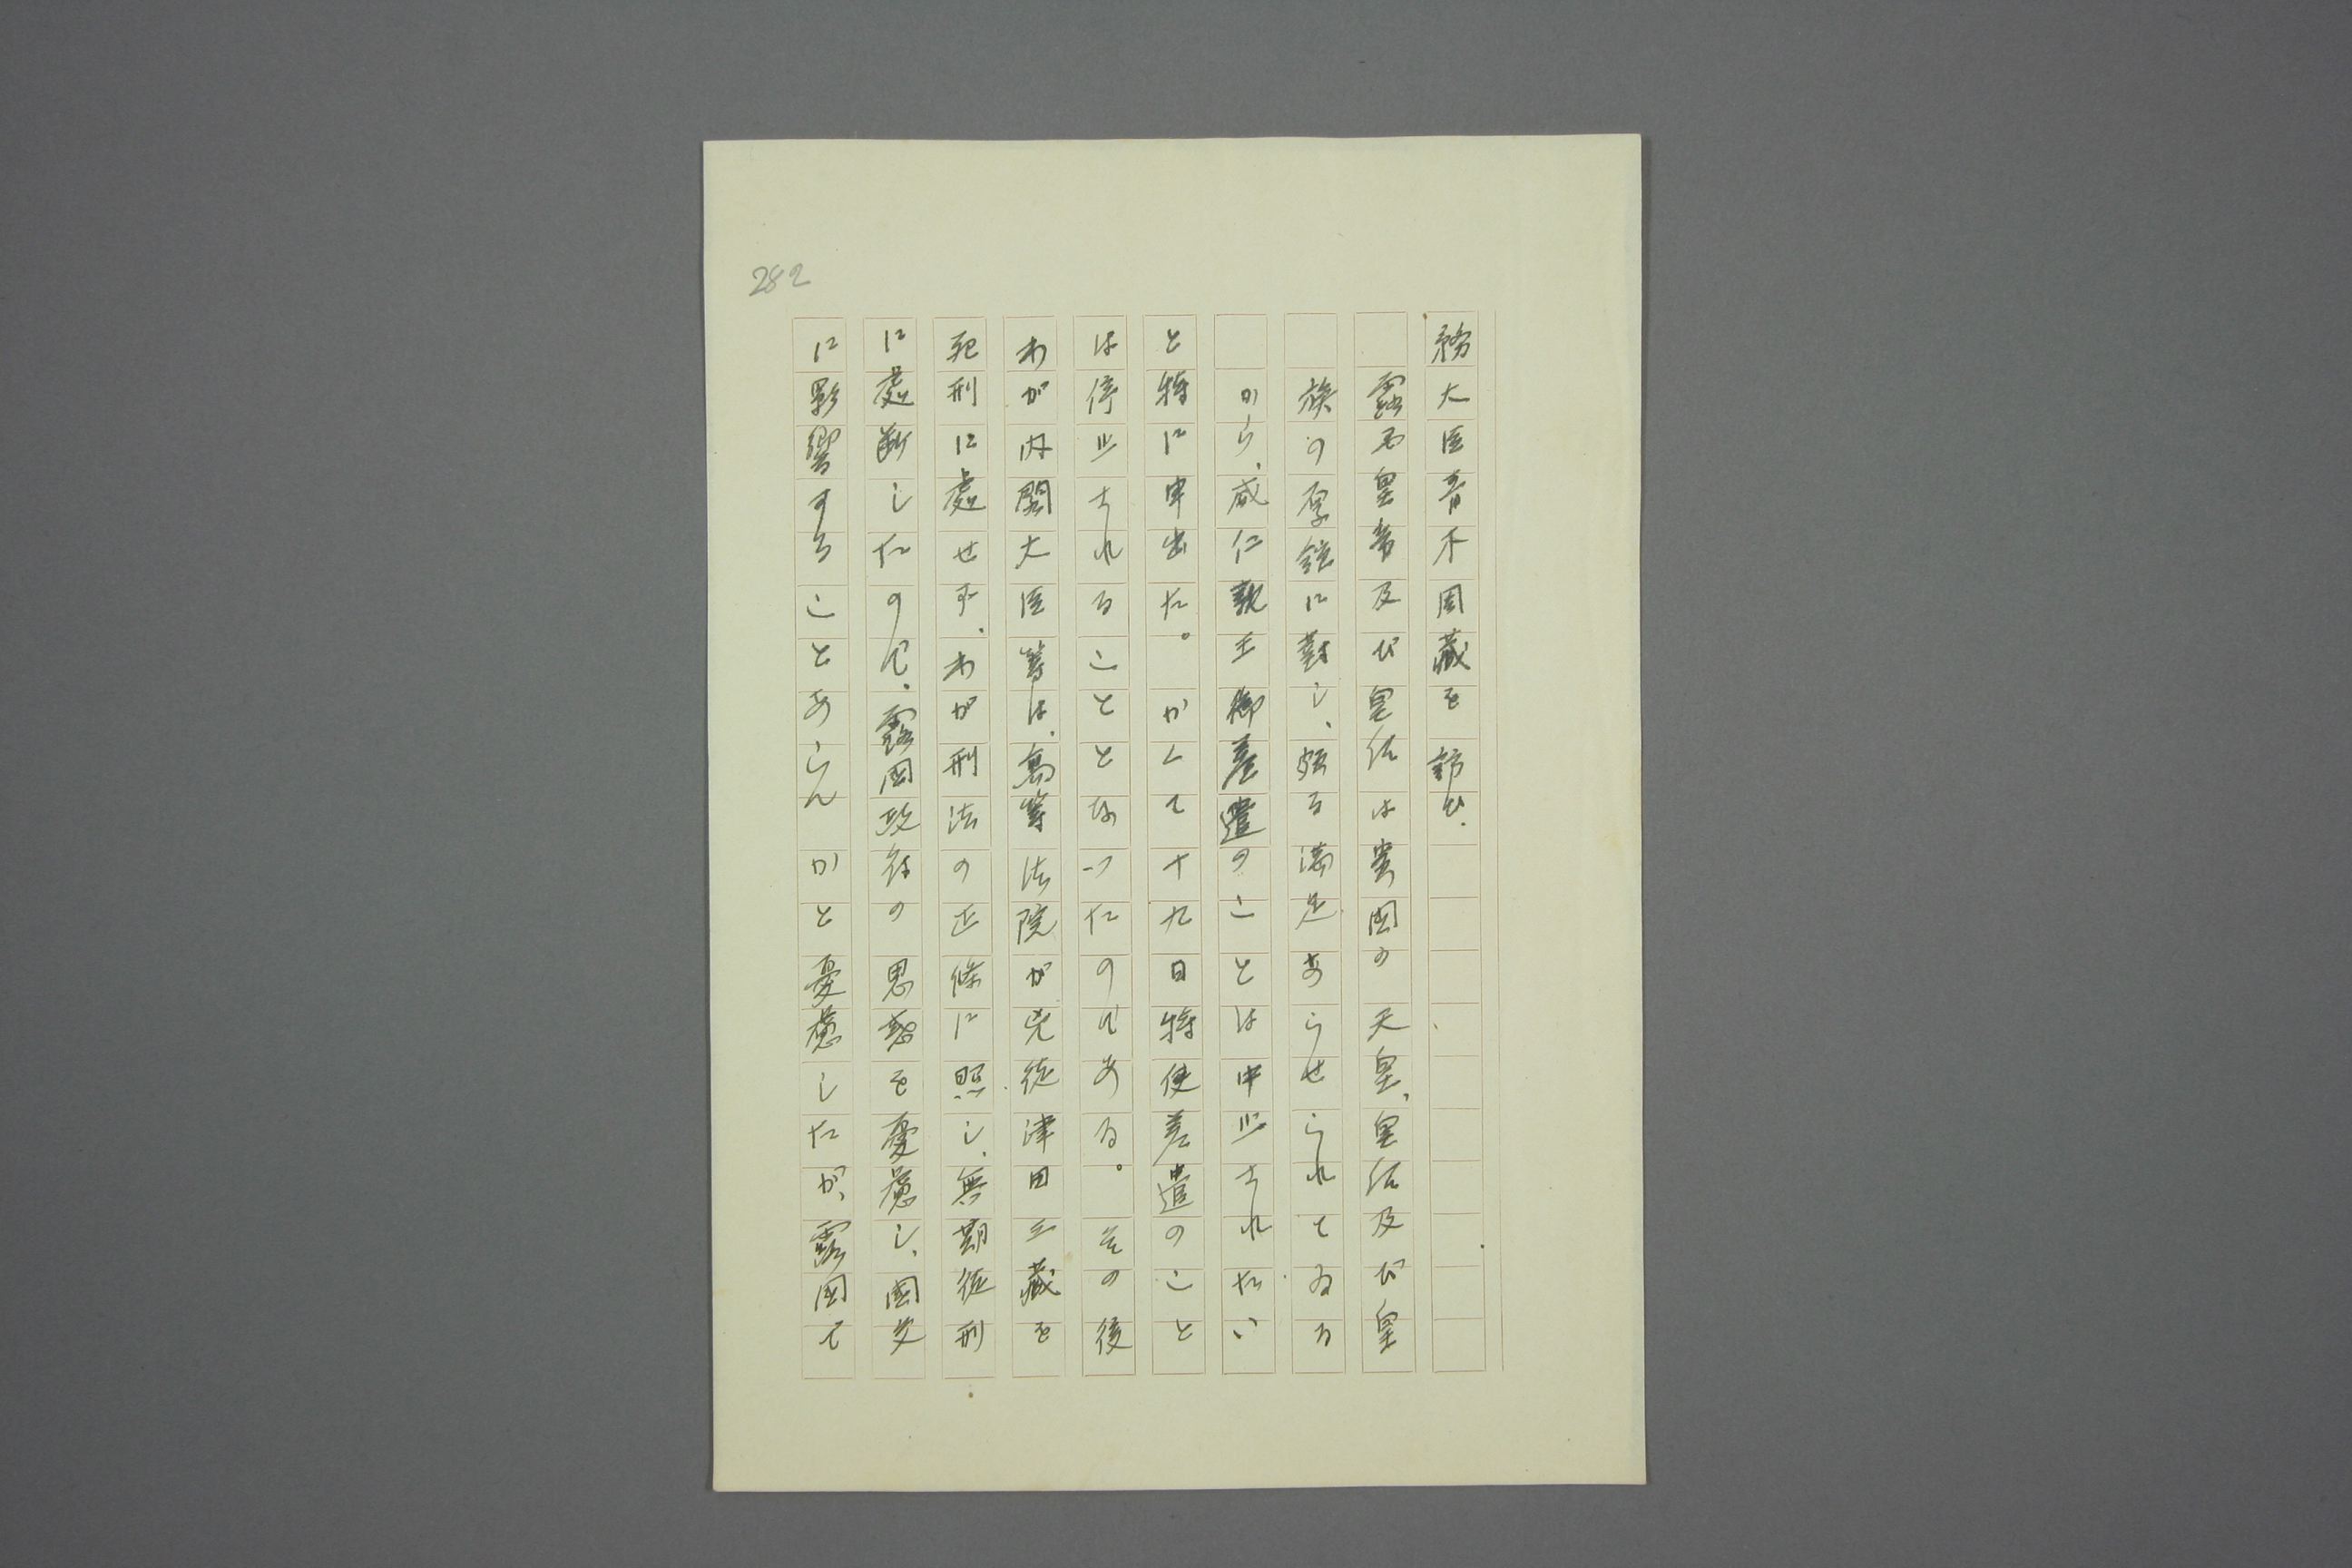 282
務大臣青木周蔵を訪ひ、
露国皇帝及び皇后は貴国の　天皇、皇后及び皇
族の厚誼に對し、頗る満足あらせられてゐる
から、威仁親王御差遣のことは中止されたい
と特に申出た。かくて十九日特使差遣のこと
は停止されることとなつたのである。その後
わが内閣大臣等は、高等法院が兇徒津田三蔵を
死刑に處せず、わが刑法の正條に照し、無期徒刑
に處断したので、露国政府の思惑を憂慮し、國交
に影響することあらんかと憂慮したが、露国で